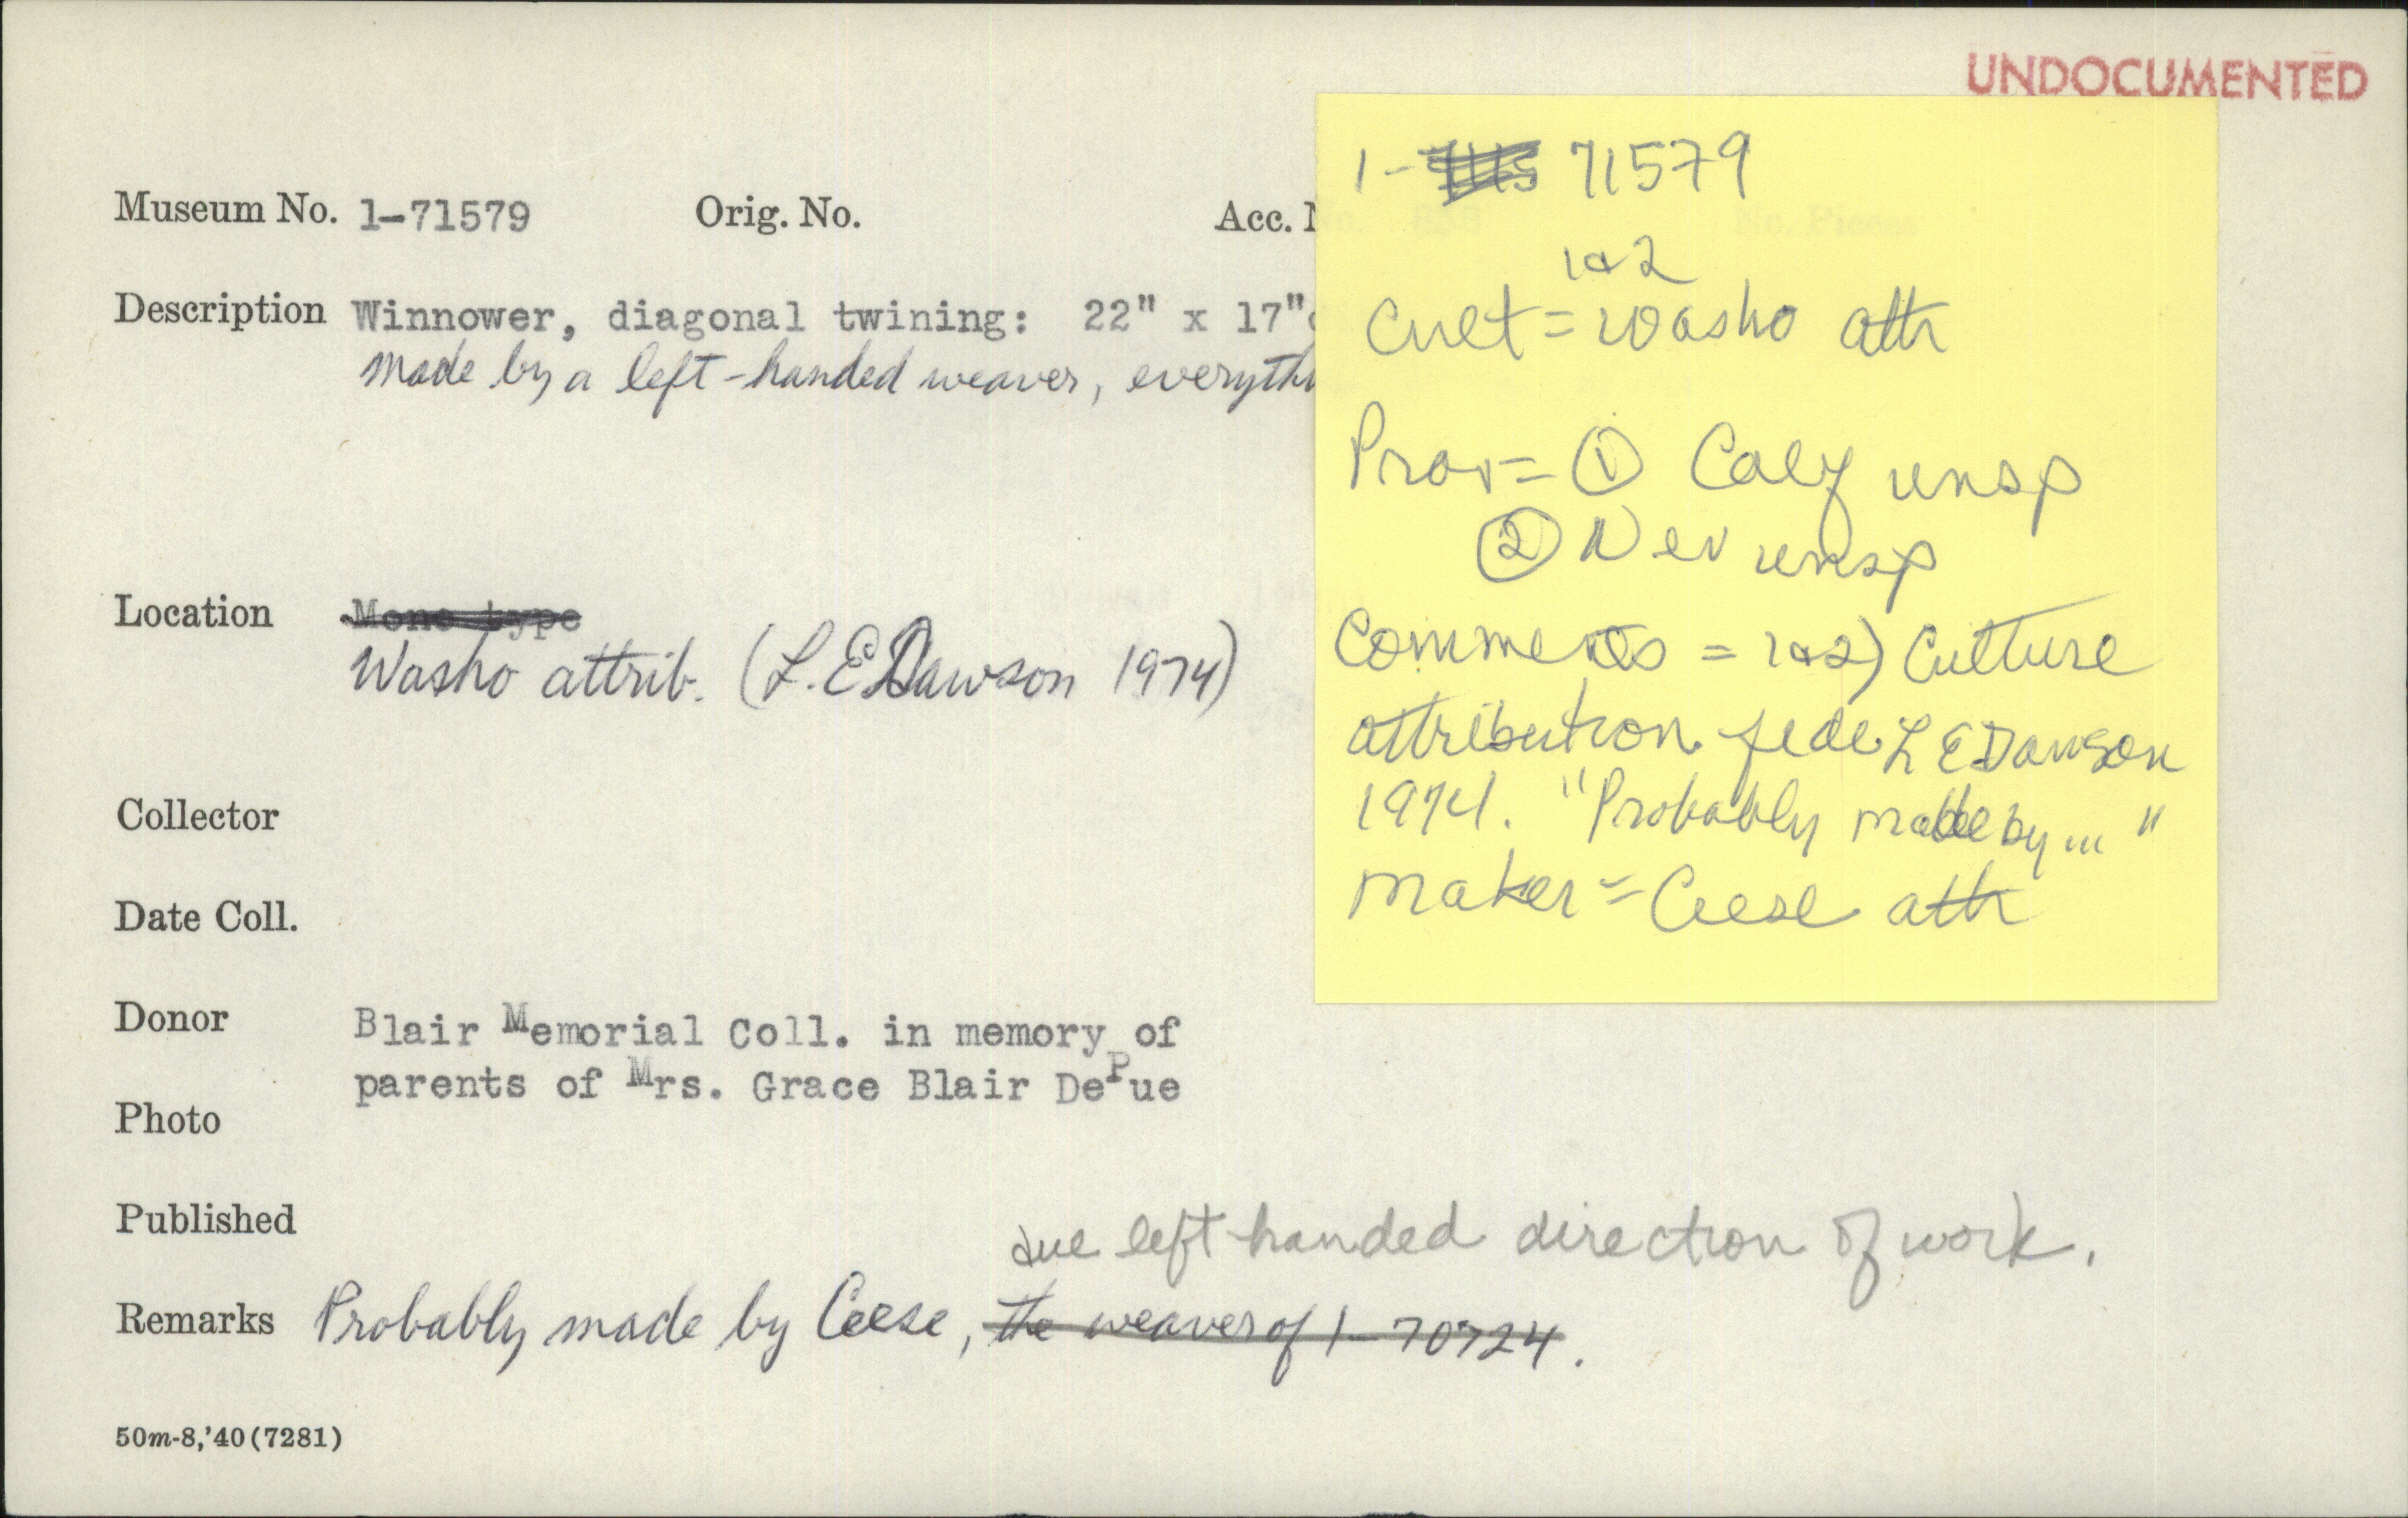 UNDOCUMENTED
Museum No. 1-71579 Orig. No. Acc.
Description Winnower, diagonal twining: 22" x 17"
Made by a left-handed weaver, everythi
Location Mono type
Washo attrib. (L.E.Dawson 1974)
Collector
Date Coll.
Donor Blair Memorial Coll. in memory of
parents of Mrs. Grace Blair DePue
Photo
Published
due left handed direction of work.
Remarks Probably made by Ceese, the weaver of 1-70724.
50m-8,'40(7281)
1- 71579
1&2
Cult = Washo attr
Prov = ① Calif unsp
② Nev unsp
Comments = 1&2) Culture
attribution fide L E Dawson
1974. "Probably made by ..."
Maker = Ceese attr